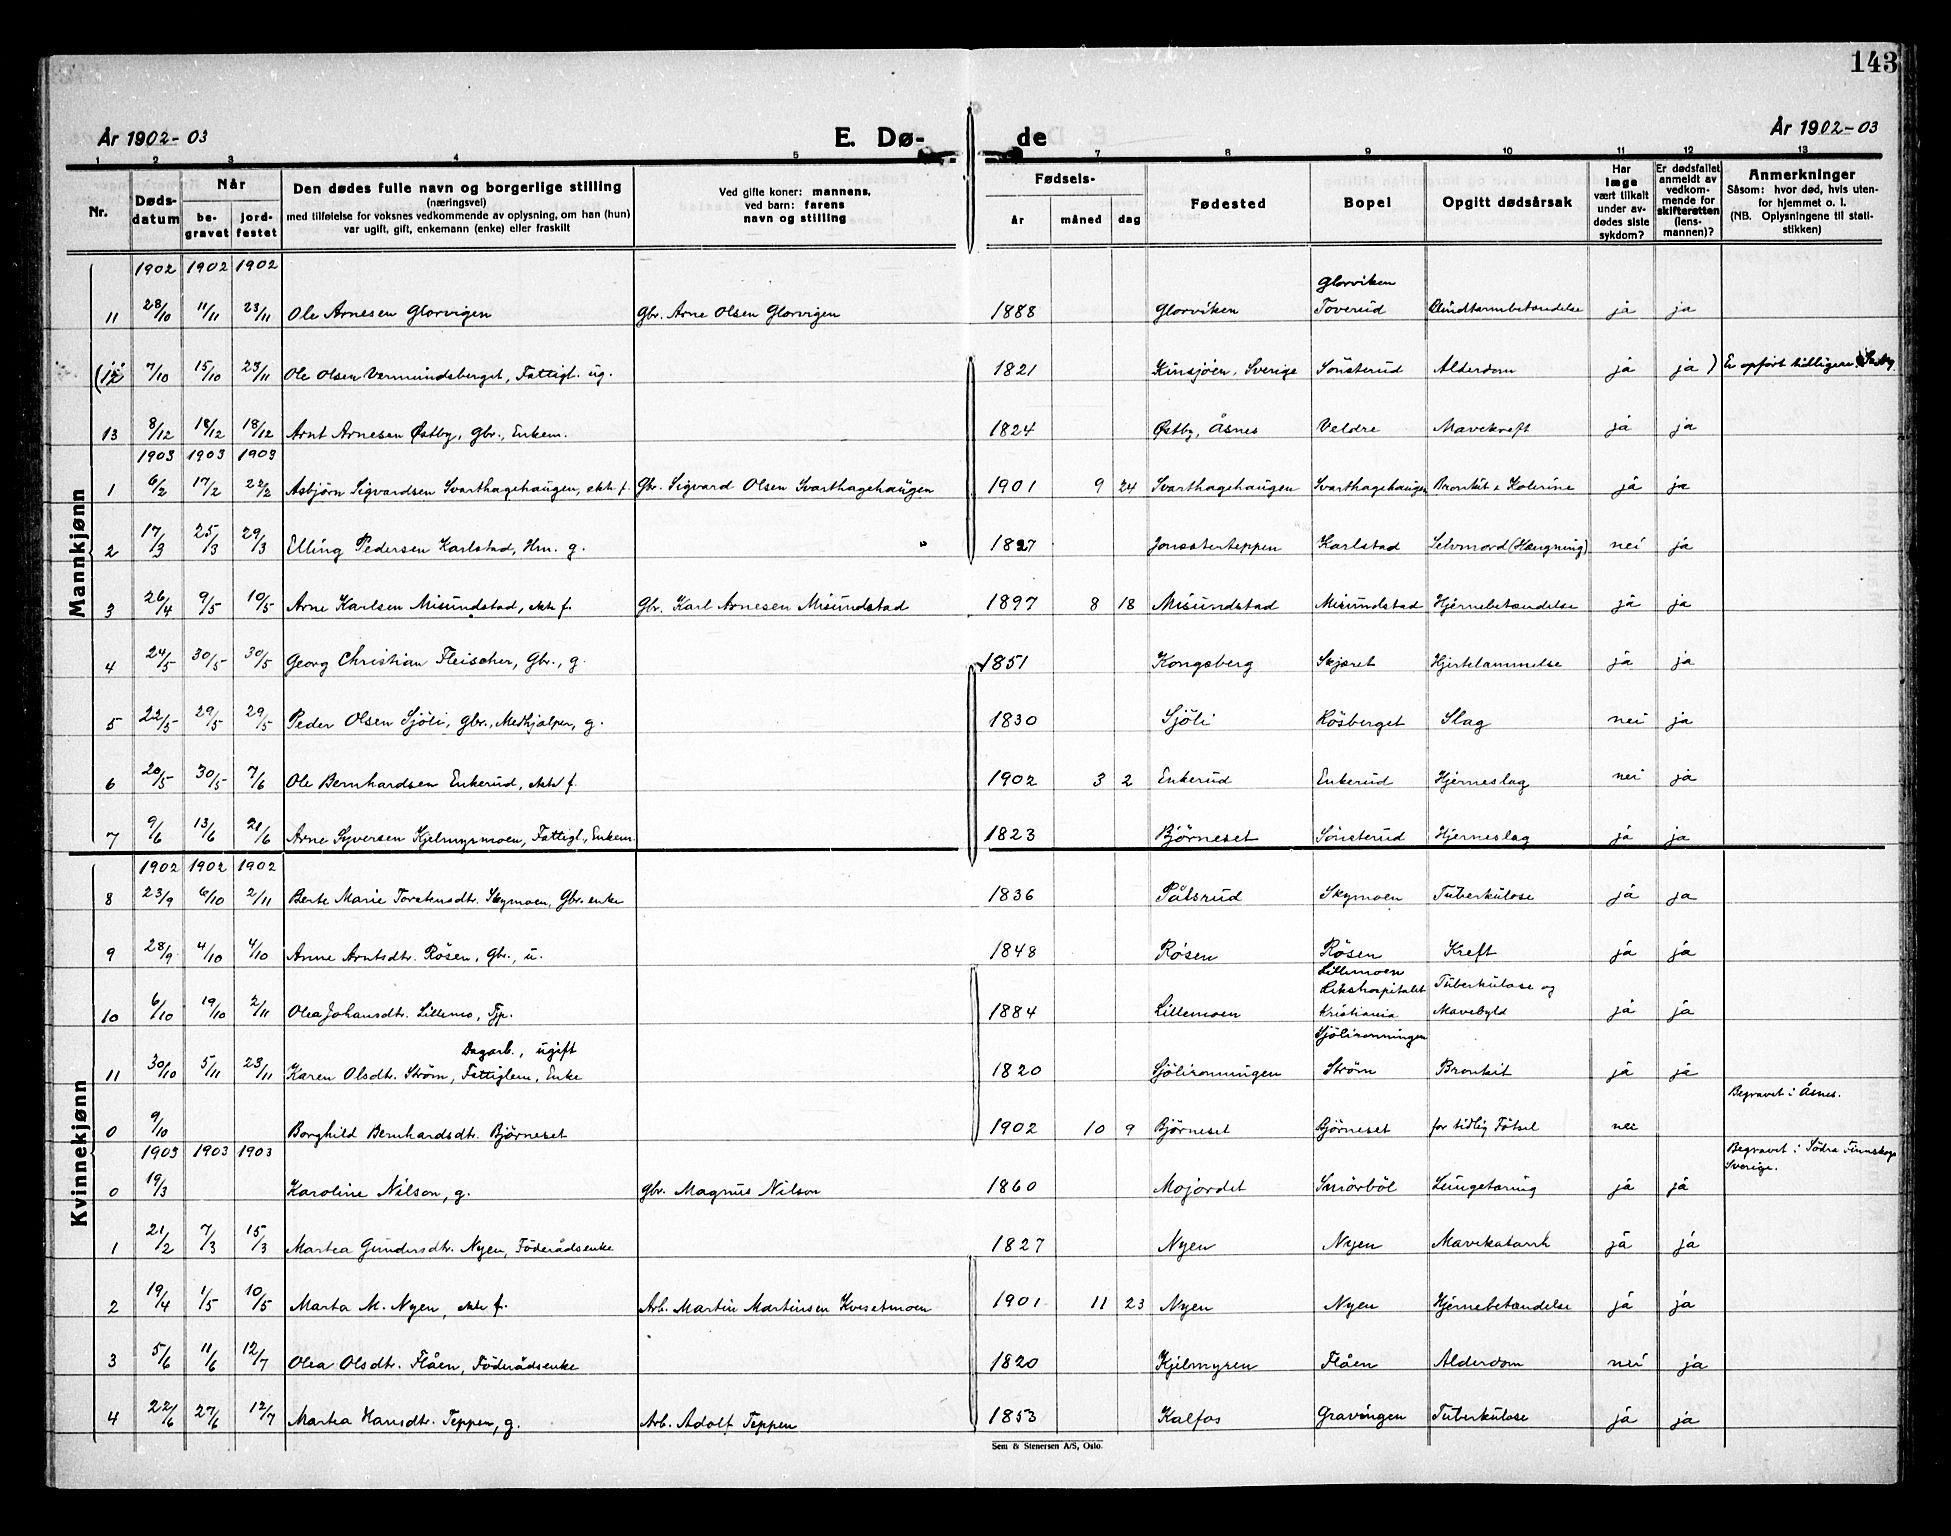 143
År 1902-03 E. Dø- de År 1902-03
1 2 3 4 5 7 8 9 10 11 12 13
Nr. Dødsdatum Når begravet jordfestet
Den dødes fulle navn og borgerlige stilling
(næringsvei)
med tilføielse for voksnes vedkommende av oplysning, om han (hun)
var ugift, gift, enkemann (enke) eller fraskilt
Ved gifte koner: mannens,
ved barn: farens
navn og stilling
Fødsels-
år måned dag
Fødested Bopel Opgitt dødsårsak
Har læge vært tilkalt under avdødes siste sykdom?
Er dødsfallet anmeldt av vedkommende for skifteretten (lensmannen)?
Anmerkninger
Såsom: hvor død, hvis utenfor hjemmet o. l.
(NB. Oplysningene til statistikken)
Mannkjønn
1902 1902 1902
11 28/10 11/11 23/11 Ole Arnesen Glorvigen Gbr. Arne Olsen Glorvigen 1888 Glorviken Glorviken Toverud Blindtarmbetændelse ja ja
(12 7/10 15/10 23/11 Ole Olsen Vermundsberget, Fattigl. ug. 1821 Kinsjöen, Sverige Sönsterud Alderdom ja ja) Er opført tidligere
13 8/12 18/12 18/12 Arnt Arnesen Østby, Gbr., Enkem. 1824 Østby, Åsnes Veldre Mavekreft ja ja
1903 1903 1903
1 6/2 17/2 22/2 Asbjörn Sigvardsen Svarthagehaugen, ekte f. Gbr. Sigvard Olsen Svarthagehaugen 1901 9 24 Svarthagehaugen Svarthagehaugen Bronkit & Kolerine ja ja
2 17/3 25/3 29/3 Elling Pedersen Karlstad, Hm. g. 1827 Jonsæterteppen Karlstad Selvmord (Hængning) nei ja
3 26/4 9/5 10/5 Arne Karlsen Misundstad, ekte f. Gbr. Karl Arnesen Misundstad 1897 8 18 Misundstad Misundstad Hjernebetændelse ja ja
4 24/5 30/5 30/5 Georg Christian Fleischer, Gbr., g. 1851 Kongsberg Skjæret Hjertelammelse ja ja
5 22/5 29/5 29/5 Peder Olsen Sjöli, gbr., Medhjælper, g. 1830 Sjöli Kösberget Slag nei ja
6 20/5 30/5 7/6 Ole Bernhardsen Enkerud, ekte f. 1902 3 2 Enkerud Enkerud Hjerneslag nei ja
7 9/6 13/6 21/6 Arne Syversen Kjelmyrmoen, Fattigl., Enkem. 1823 Björneset Sönsterud Hjerneslag ja ja
Kvinnekjønn
1902 1902 1902
8 23/9 6/10 2/11 Berte Marie Torstensdtr. Skymoen, Gbr. enke 1836 Pålsrud Skymoen Tuberkulose ja ja
9 28/9 4/10 4/10 Anne Arntsdtr. Rösen, Gbr., u. 1848 Rösen Rösen Kreft ja ja
10 6/10 19/10 2/11 Olea Johansdtr. Lillemo, Tjp. 1884 Lillemoen Lillemoen Rikshospitalet Kristiania Tuberkulose og Mavebyld ja ja
Dagarb., ugift
11 30/10 5/11 23/11 Karen Olsdtr. Ström, Fattiglem, Enke 1820 Sjölirønningen Sjölirønningen Ström Bronkit ja ja
0 9/10 Borghild Bernhardsdtr. Björneset 1902 10 9 Björneset Björneset for tidlig Fötsel nei Begravet i Åsnes.
1903 1903 1903
0 19/3 Karoline Nilson, g. gbr. Magnus Nilson 1860 Mojordet Smörböl Lungetæring ja ja Begravet i Södra Finnskoga Sverige.
1 21/2 7/3 15/3 Martea Gundersdtr. Nyen, Föderådsenke 1827 Nyen Nyen Mavekatarrh ja ja
2 19/4 1/5 10/5 Marta M. Nyen, ekte f. Arb. Martin Martinsen Kvesetmoen 1901 11 23 Nyen Nyen Hjernebetændelse ja ja
3 5/6 11/6 12/7 Olea Olsdtr. Flåen, Föderådsenke 1820 Kjelmyren Flåen Alderdom nei ja
4 22/6 27/6 12/7 Martea Hansdtr. Teppen, g. Arb. Adolf Teppen 1853 Kalfos Gravingen Tuberkulose ja ja
Sem & Stenersen A/S, Oslo.